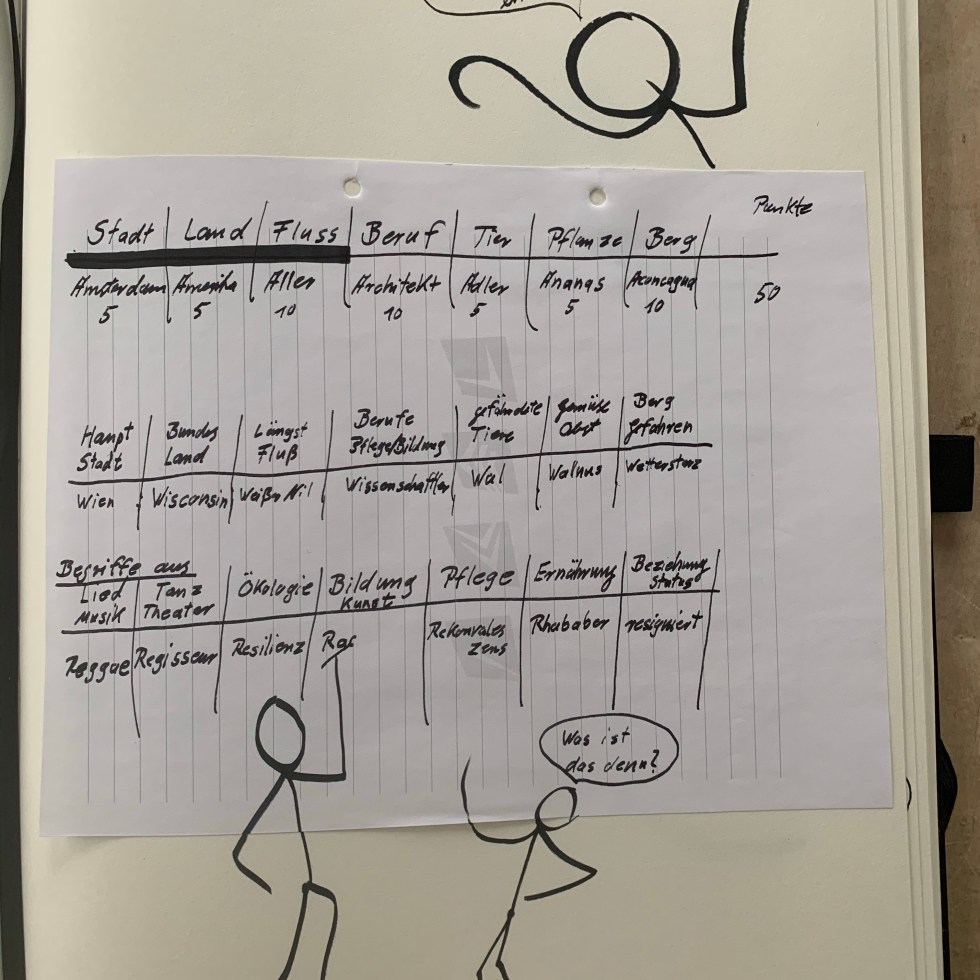 Punkte
Stadt Land Fluss Beruf Tier Pflanze Berg
Amsterdam Amerika Aller Architekt Adler Ananas Aconcagua 50
5 5 10 10 5 5 10
Haupt Stadt Bundes Land Längst Fluß Berufe Pflege/Bildung gefährdete Tiere Gemüse Obst Berg Gefahren
Wien Wisconsin Weißer Nil Wissenschaftler Wal Walnus Wettersturz
Begriffe aus
Lied Musik Tanz Theater Ökologie Bildung Kunst Pflege Ernährung Beziehung Status
Reggae Regisseur Resilienz Rekonvales zens Rhababer resigniert
Was ist
das denn?